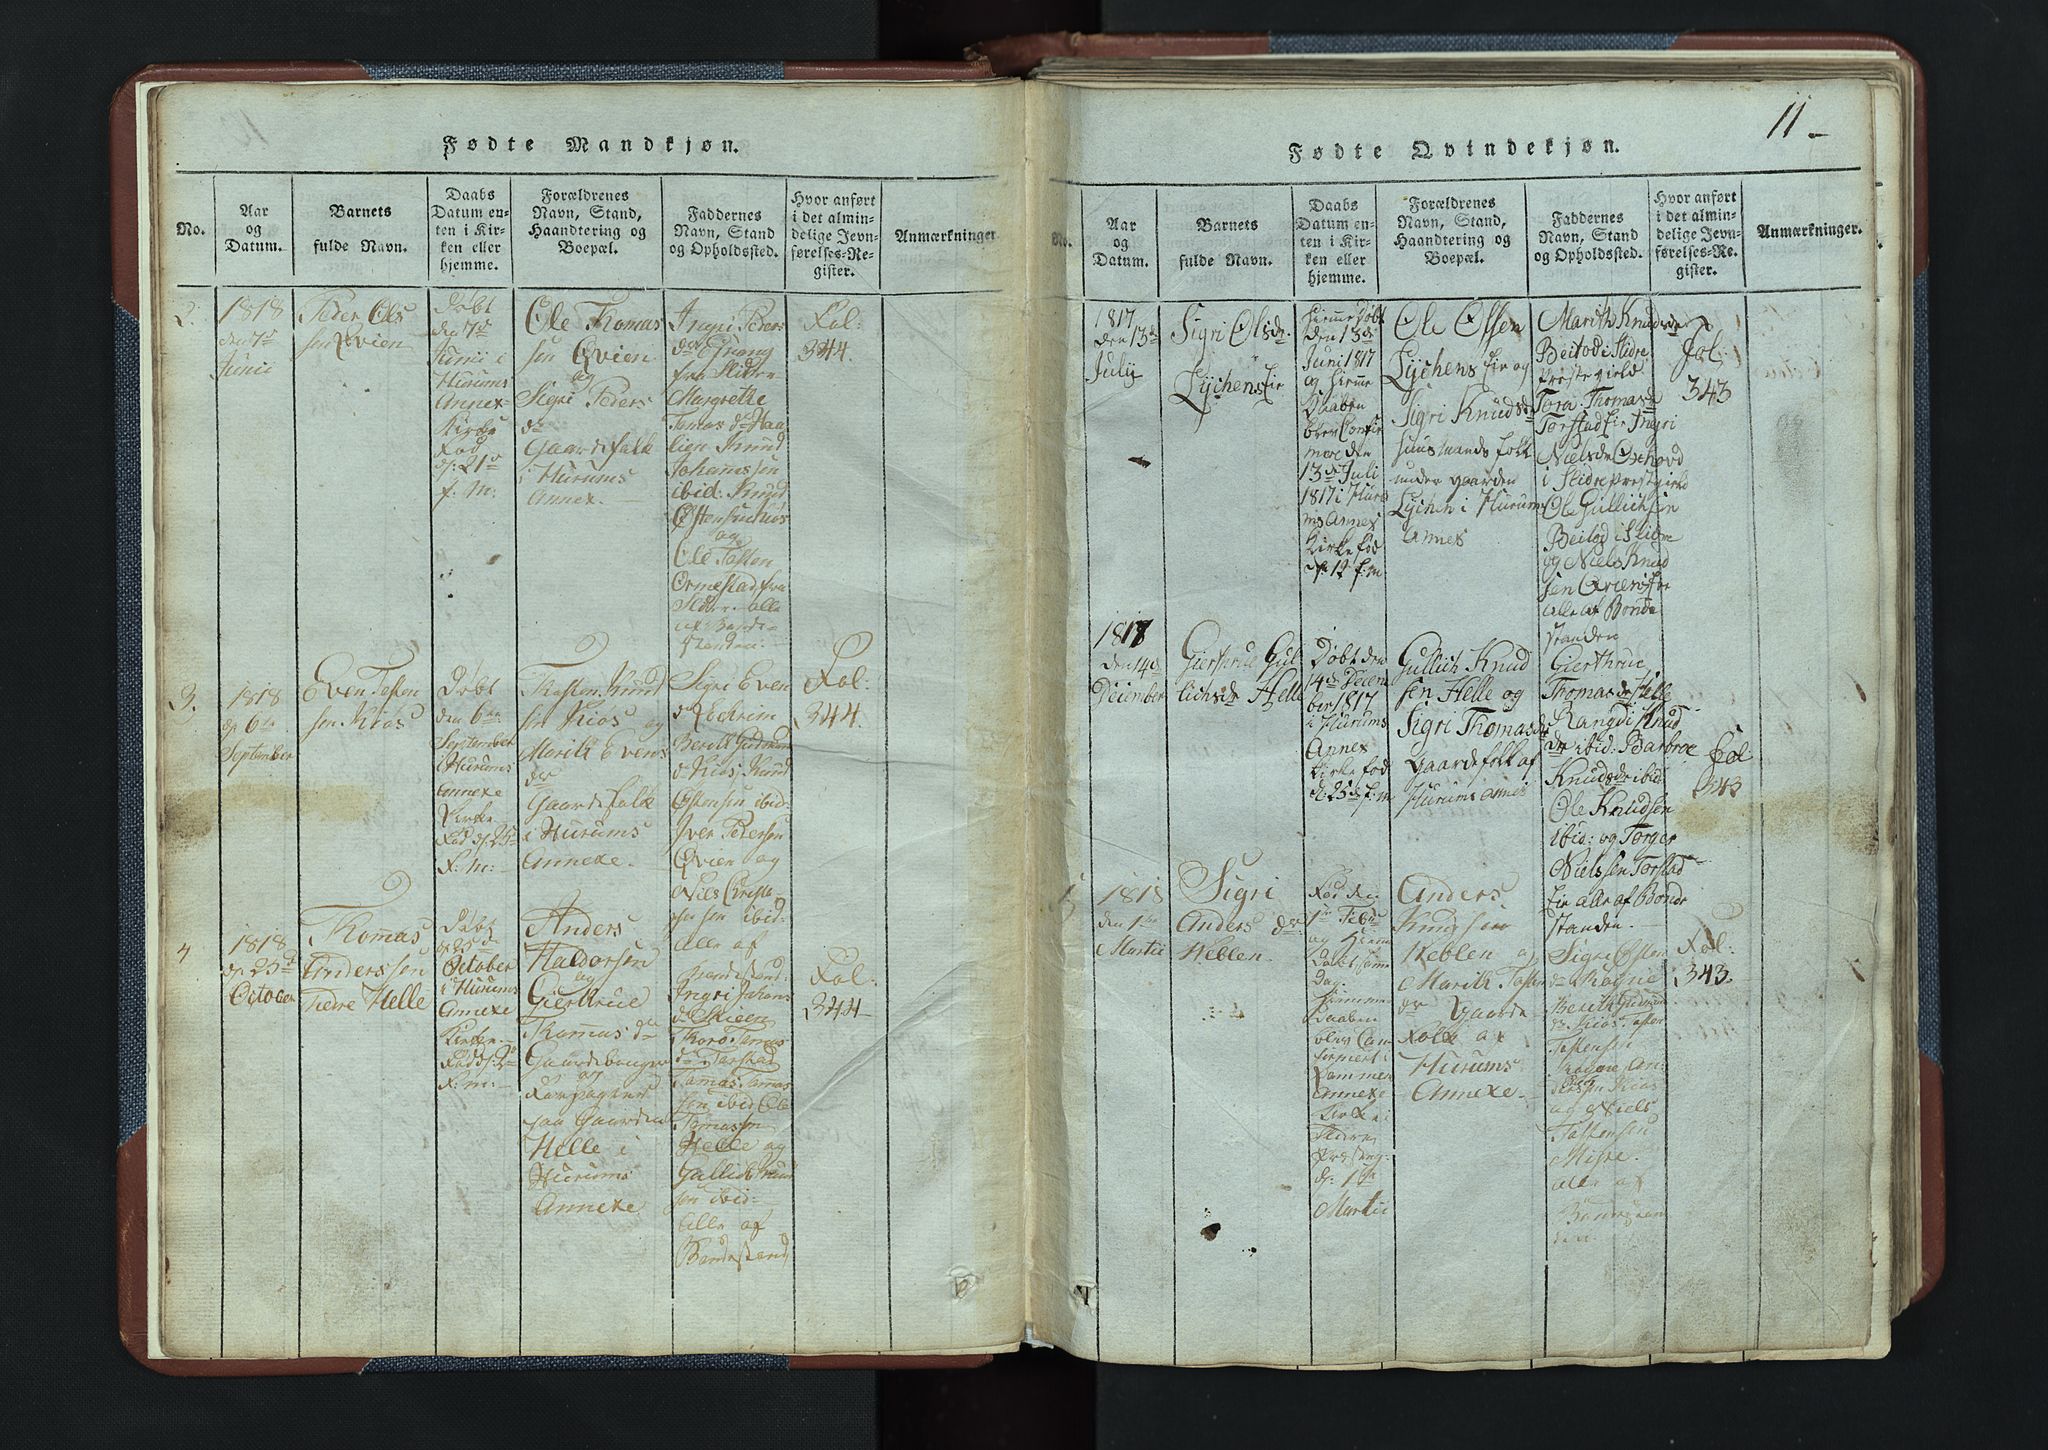 Fødte Mandkjøn.
No.
Aar
og
Datum.
Barnets
fulde Navn.
Daabs
Datum en-
ten i Kir-
ken eller
hjemme.
Forældrenes
Navn, Stand,
Haandtering og
Boepæl.
Faddernes
Navn, Stand
og Opholdssted.
Hvor anført
i det almin-
delige Jevn-
førelses-Re-
gister.
Anmærkninger
2.
1818
den 7de
Junii
Peder Ols
sen Qvien
Døbt
den 7de
Junii i
Hurums
Annex-
Kirke
Fød
f. m:
Ole Thomas
sen Qvien
og
Sigri Peders
dr
Gaardsfolk
i Hurums
Annex.
Ingri Peders
fra Slidre
Margrethe
Tomas dr Haa
lien Knud
Johannssen
ibid: Knud
Ostensen Kiøs
og
Ole Tosten
Ormestad fra
Slidre alle
af Bonde-
Standen:
Fol:
344.
3.
1818
dp 6te
September
Even Tosten
sen Kiøs
Døbt
den 6te
September
i Hurums
Annexe
Kirke
Fød dp. 25de
F: m:
Tosten Knud
sen Kiøs og
Marith Evens
dr
Gaardsfolk
i Hurums
Annexe.
Sigri Even
Berith Gudmun
d Kiøs, Knud
Ostensen ibid:
Iver Pedersen
Qvien og
Niels Christo-
phersen ibid:
alle af
Bondestand:
Fol:
344.
4
1818
dp 25de
October
Thomas
Anderssen
Nedre Helle
Døbt
dp 25de
October
i Hurums
Annexe
Kirke
F: m:
Anders
Haldorsen
og
Giertrue
Thomas dr
Gaardebruger
og
Forpagter
paa Gaarden
Helle i
Hurums
Annexe
Ingri Johans
dr Skieen
Thoro Tomas
dr Torstad
Tomas Tomas
sen ibid Ole
Tomassen
Helle og
Gullich Knud
sen ibid:
Alle af
Bondestand
Fol:
344
11
Fødte Qvindekjøn.
No.
Aar
og
Datum.
Barnets
fulde Navn.
Daabs
Datum en-
ten i Kir-
ken eller
hjemme.
Forældrenes
Navn, Stand,
Haandtering og
Boepæl.
Faddernes
Navn, Stand
og Opholdssted.
Hvor anført
i det almin-
delige Jevn-
førelses-Re-
gister.
Anmærkninger.
1817
den 13de
July
Sigri Olsdr
Lychens Eie
Hiemedøbt
den 13de
Juni 1817
og hieme
Daaben
blev Confir
meret den
13de Juli
1817 i Huru
ms Annex
Kirke fød
dp. 12 f. m
Ole Olsen
Lychens Eie og
Sigri Knudsdr
Huusmands folk
under Gaarden
Lychen i Hurum
Annex
Marith Knudsdr
Beitod i Slidre
Prestegield
Tora Thomasdr
Torstad Eie Ingri
Nielsdr
i Slidre Prestgield
Ole Gullichsen
Beitod i Slidre
og Niels Knud
sen Qviens Eie
alle af Bonde
standen
Fol:
343
1817
den 14de
Deiember
Gierthrue Gul
lichsdr Helle
Døbt den
14de Deiem
ber 1817
i Hurums
Annex
Kirke fød
dp. 25de f. m
Gullich Knud
sen Helle og
Sigri Thomasdr
Gaardsfolk af
Hurums Annex
Gierthrue
Thomasdr Helle
Rangdi Knud
dr ibid: Barbroe
Knudsdr ibid
Ole Knudsen
ibid: og Torger
Nielssen Torstad
Eie alle af Bonde
standen.
Fol
343
1818
den 1te
Martii
Sigri
Anders dr
Heblen.
Fød den
1te Febru
og hieme
Døbt samme
Dag.
Hiemme
Daaben
blev Con
fermert i
Annexe
Kirke i
Slidre
Presteg:
d: 1te
Martii
Anders
Knudsen
Heblen og
Marith Tosten
dr Gaards
Folk af
Hurums
Annexe.
Sigri Osten
dr Rogne
Berith Gudmun
dr Kiøs Tosten
Tostensen
Rogne An
dersen Kiøs
og Niels
Tostensen
alle af
Fol:
343.